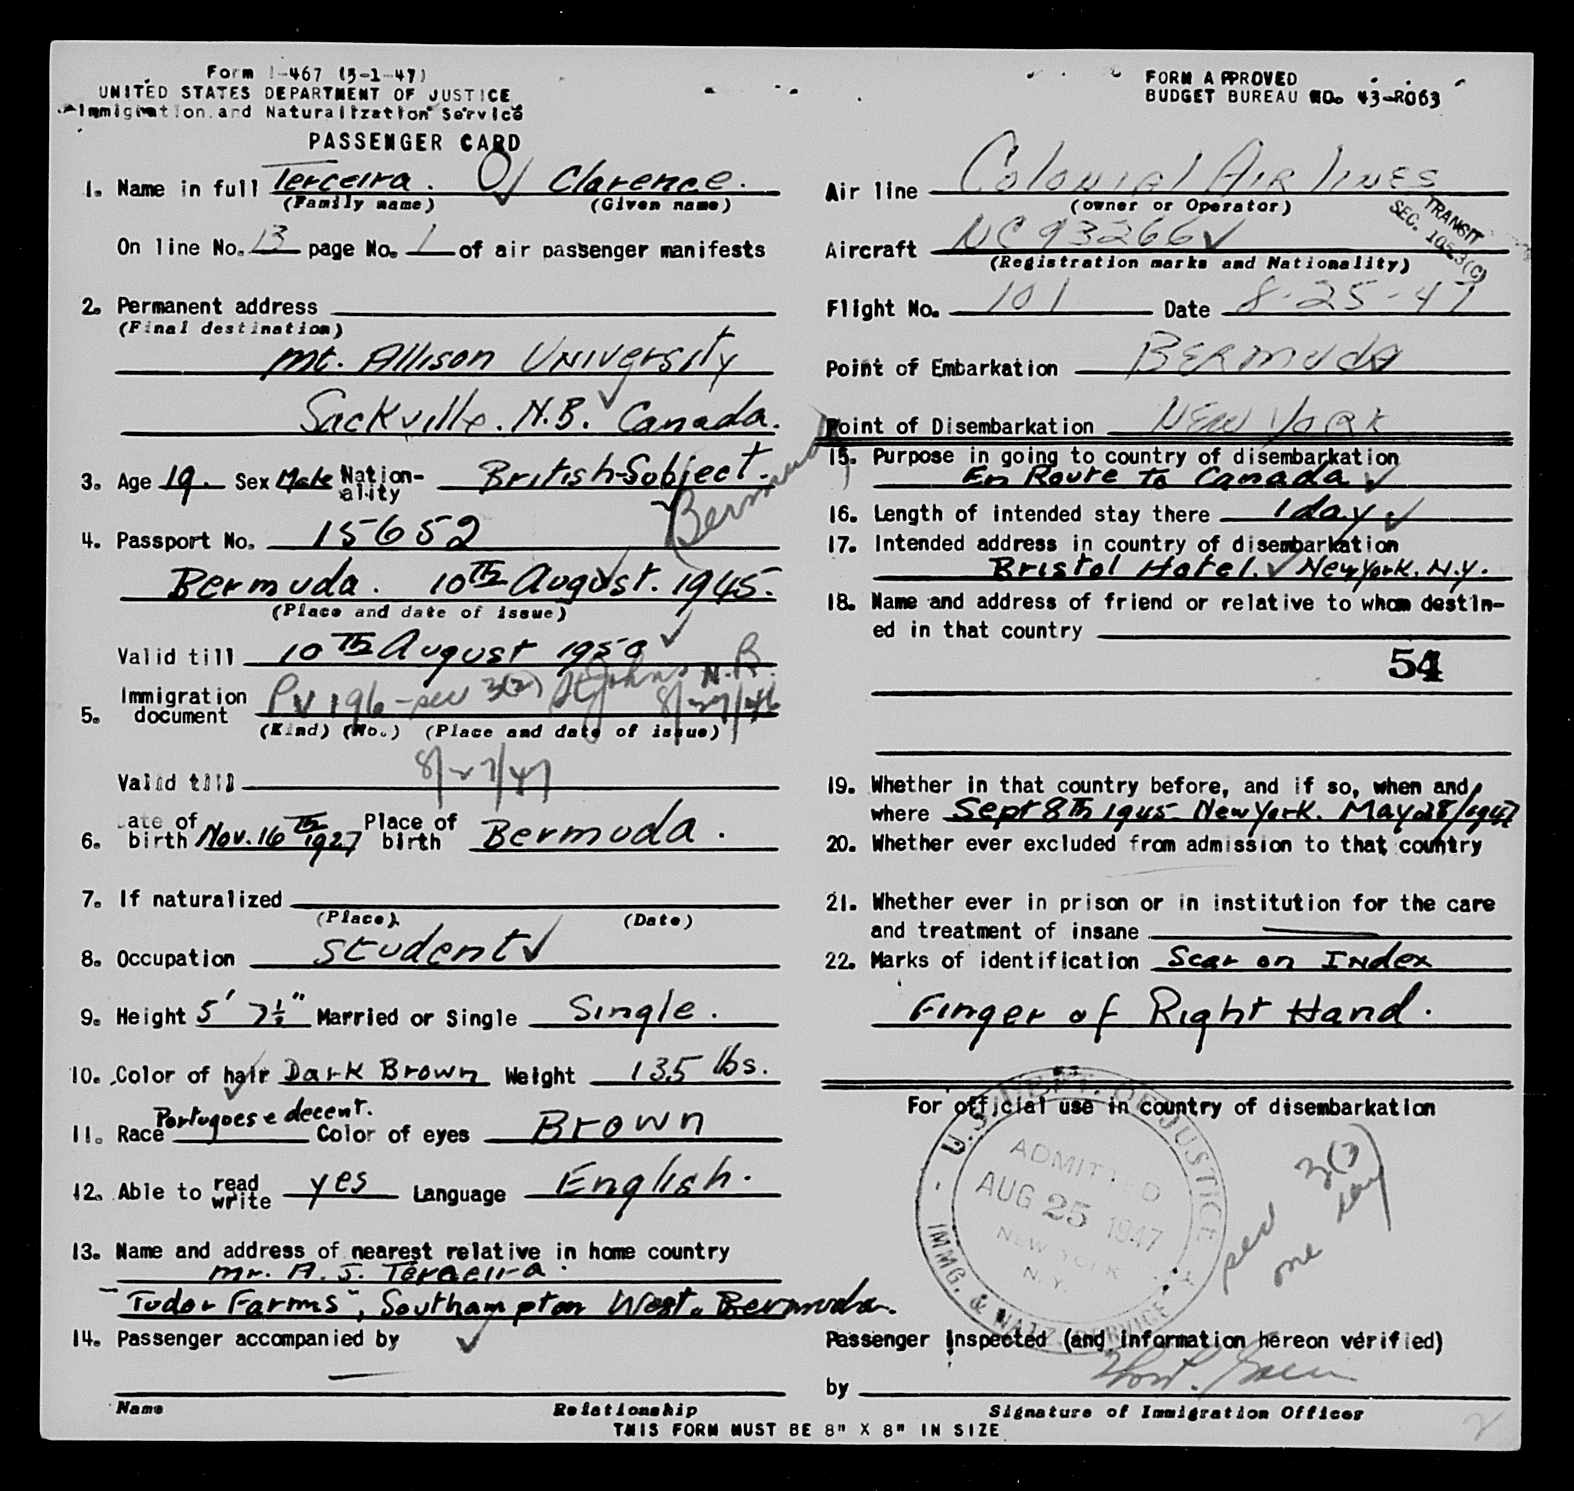 Form I-467 (5-1-47)
UNITED STATES DEPARTMENT OF JUSTICE
Immigration and Naturalization Service
PASSENGER CARD
FORM APPROVED
BUDGET BUREAU NO. 43-R063
1. Name in full Terceira. Clarence.
(Family name) (Given name)
On line No. 13 page No. 1 of air passenger manifests
2. Permanent address
(Final destination)
Mt. Allison University
Sackville. N.B. Canada.
3. Age 19. Sex Male Nation-ality British-Subject.
Bermuda
4. Passport No. 15652
Bermuda. 10TH August. 1945.
(Place and date of issue)
Valid till 10TH August 1950
5. Immigration document PV 196 - sec 3(2) St Johns N.B. 8/27/46
(Kind) (No.) (Place and date of issue)
Valid till 8/27/47
6. Date of birth Nov. 16TH 1927 Place of birth Bermuda.
7. If naturalized
(Place) (Date)
8. Occupation student
9. Height 5' 7½" Married or Single Single.
10. Color of hair Dark Brown Weight 135 lbs.
11. Race Portugoese decent. Color of eyes Brown
12. Able to read write yes Language English.
13. Name and address of nearest relative in home country
Mr. A. J. Terceira.
"Tudor Farms", Southampton West. Bermuda.
14. Passenger accompanied by
Name Relationship
Air line Colonial Air Lines
(owner or Operator)
TRANSIT
SEC. 10523(C)
Aircraft NC 93266
(Registration marks and Nationality)
Flight No. 101 Date 8-25-47
Point of Embarkation Bermuda
Point of Disembarkation New York
15. Purpose in going to country of disembarkation
En Route To Canada
16. Length of intended stay there 1 day
17. Intended address in country of disembarkation
Bristol Hotel. New York. N.Y.
18. Name and address of friend or relative to whom destin-
ed in that country
54
19. Whether in that country before, and if so, when and
where Sept 8TH 1945 New York. May 28/1947
20. Whether ever excluded from admission to that country
21. Whether ever in prison or in institution for the care
and treatment of insane
22. Marks of identification Scar on Index
Finger of Right Hand.
For official use in country of disembarkation
U.S. DEPT. OF JUSTICE
IMMG. & NATZ. SERVICE
ADMITTED
AUG 25 1947
NEW YORK
N.Y.
3(3)
one day
Passenger inspected (and information hereon verified)
by
Signature of Immigration Officer
THIS FORM MUST BE 8" X 8" IN SIZE